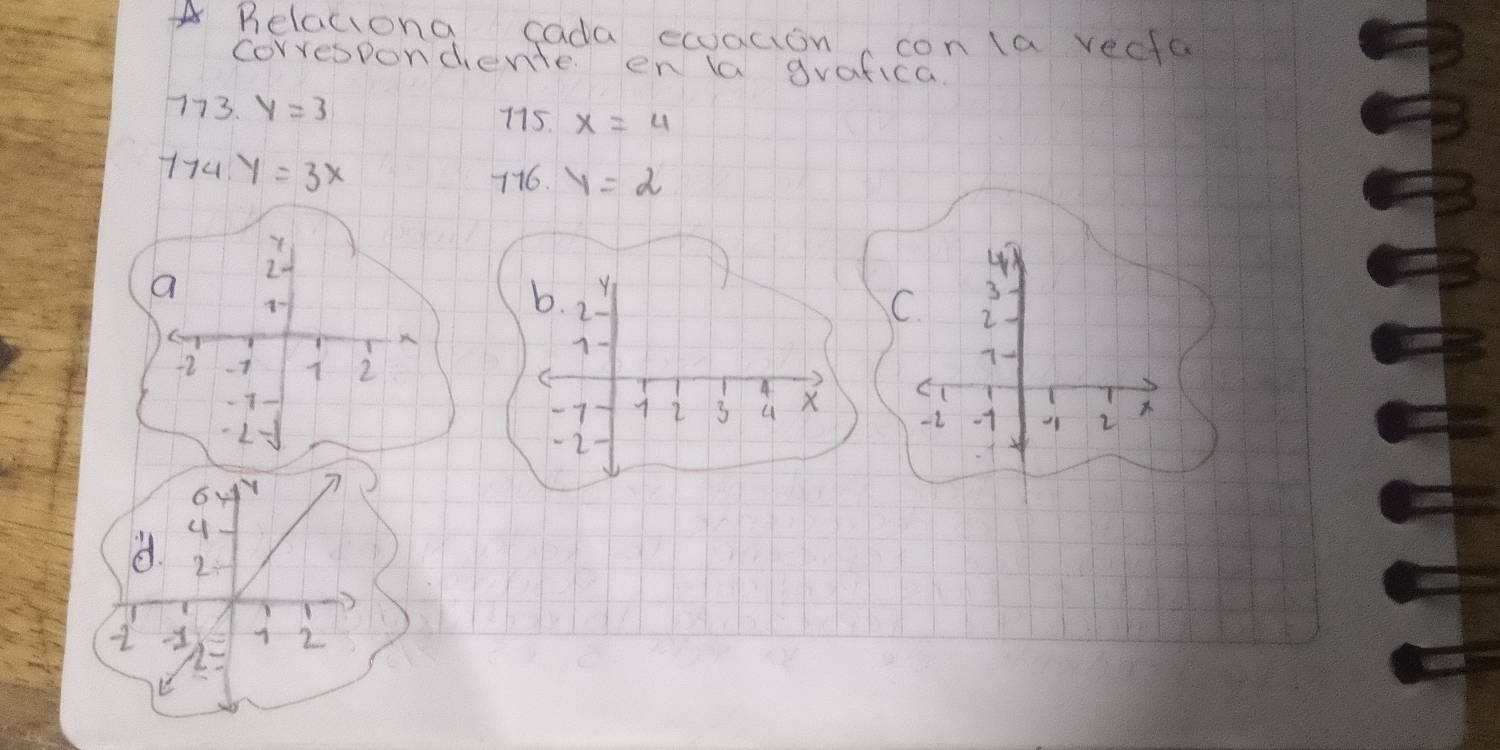 A Relaciona cada ecuación con la recta
correspondiente en la grafica.
113. Y = 3
115. X = 4
114. Y = 3X
116. Y = 2
a
Y
2
1
-2 -1 1 2 X
-1
-2
b.
Y
2
1
1 2 3 4 X
-1
-2
C.
4 Y
3
2
1
-2 -1 1 2 X
d.
6 Y
4
2
-2 -1 1 2
2